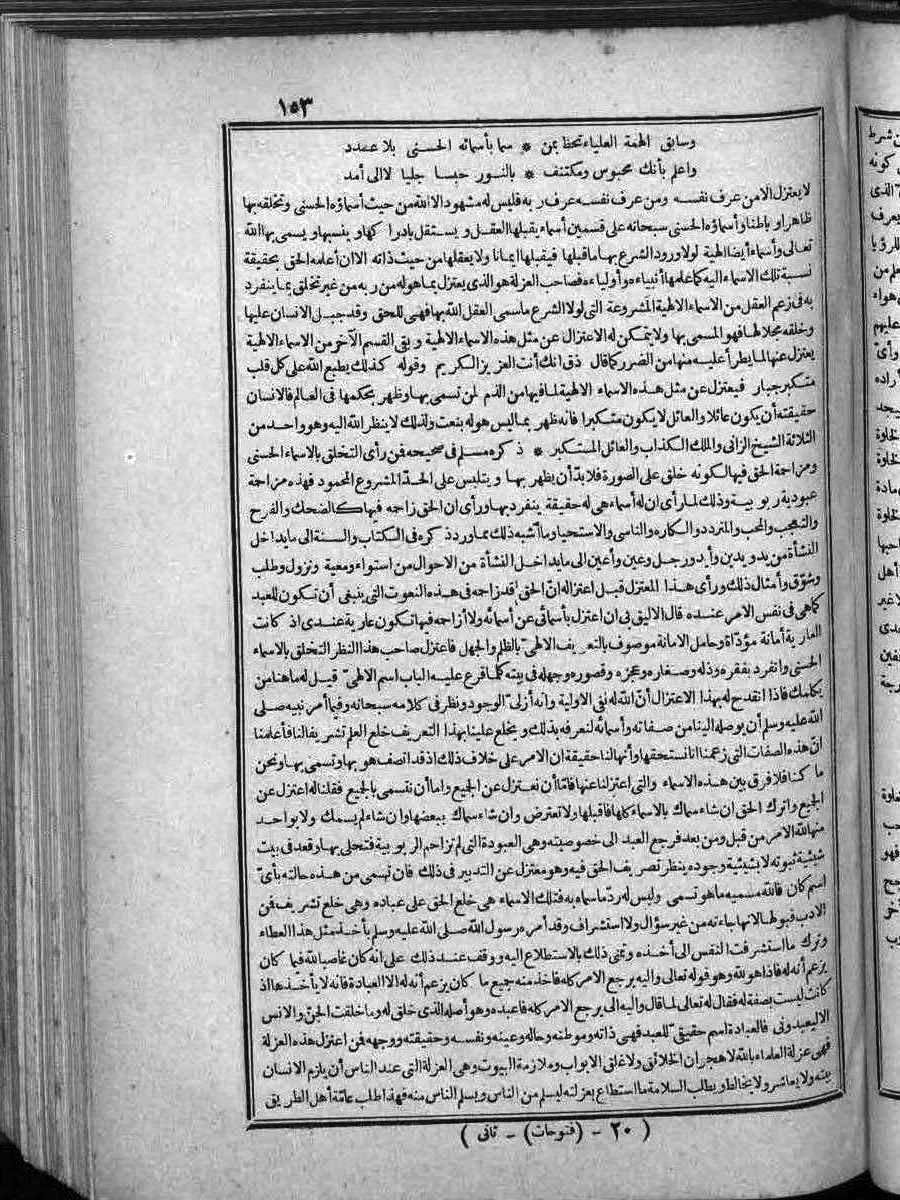 ١٥٣
وسابق الهمة العلياء تحظ بمن * سما بأسمائه الحسنى بلا عدد
واعلم بأنك محبوس ومكتنف * بالنور حبسا جليا لا الى أمد
لا يعتزل الا من عرف نفسه ومن عرف نفسه عرف ربه فليس له مشهود الا الله من حيث أسماؤه الحسنى وتخلقه بها
ظاهرا وباطنا وأسماؤه الحسنى سبحانه على قسمين أسماء يقبلها العقل ويستقل بادراكها وينسبها ويسمى بها الله
تعالى وأسماء أيضا الهية لولا ورود الشرع بها ما قبلها فيقبلها ايمانا ولا يعقلها من حيث ذاته الا ان أعلمه الحق بحقيقة
نسبة تلك الاسماء اليه كما علمها أنبياءه وأولياءه فصاحب العزلة هو الذى يعتزل بما هو له من ربه من غير تخلق بما ينفرد
به فى زعم العقل من الاسماء الالهية المشروعة التى لولا الشرع ما سمى العقل الله بها فهى للحق وقد جبل الانسان عليها
وخلقه محلا لها فهو المسمى بها ولا يتمكن له الاعتزال عن مثل هذه الاسماء الالهية وبقى القسم الآخر من الاسماء الالهية
يعتزل عنها لما يطرأ عليه منها من الضرر كما قال ذق انك أنت العزيز الكريم وقوله كذلك يطبع الله على كل قلب
متكبر جبار فيعتزل عن مثل هذه الاسماء الالهية لما فيها من الذم لمن تسمى بها وظهر بحكمها فى العالم فالانسان
حقيقته أن يكون عائلا والعائل لا يكون متكبرا فانه ظهر بما ليس هو له بنعت ولذلك لا ينظر الله اليه وهو واحد من
الثلاثة الشيخ الزانى والملك الكذاب والعائل المستكبر * ذكره مسلم فى صحيحه فمن رأى التخلق بالاسماء الحسنى
ومزاحمة الحق فيها لكونه خلق على الصورة فلا بدّ أن يظهر بها ويتلبس على الحدّ المشروع المحمود فهذه مزاحمة
عبودية ربوبية وذلك لما رأى ان له أسماء هى له حقيقة ينفرد بها ورأى ان الحق زاحمه فيها كالضحك والفرح
والتعجب والمحب والمتردد والكاره والناسى والاستحيا وما أشبه ذلك مما ورد ذكره فى الكتاب والسنة الى ما يداخل
النشأة من يد ويدين وأيد ورجل وعين وأعين الى ما يداخل النشأة من الاحوال من استواء ومعية ونزول وطلب
وشوق وأمثال ذلك ورأى هذا المعتزل قبل اعتزاله انّ الحق قد زاحمه فى هذه النعوت التى ينبغى أن تكون للعبد
كما هى فى نفس الامر عنده قال الاليق بى ان اعتزل بأسمائى عن أسمائه ولا أزاحمه فيها تكون عارية عندى اذ كانت
العارية أمانة مؤدّاة وحامل الامانة موصوف بالتعريف الالهىّ بالظلم والجهل فاعتزل صاحب هذا النظر التخلق بالاسماء
الحسنى وانفرد بفقره وذله وصغاره وعجزه وقصوره وجهله فى بيته كلما قرع عليه الباب اسم الالهىّ قيل له ما هنا من
يكلمك فاذا انقدح له بهذا الاعتزال أنّ الله له نفى الاولية وانه أزلىّ الوجود ونظر فى كلامه سبحانه وفيما أمر نبيه صلى
الله عليه وسلم أن يوصله الينا من صفاته وأسمائه لنعرفه بذلك ويخلع علينا بهذا التعريف خلع العلم تشريفا لنا فأعلمنا
انّ هذه الصفات التى زعمنا انا نستحقها وأنها لنا حقيقة ان الامر على خلاف ذلك اذ قد اتصف هو بها وتسمى بها ونحن
ما كنا فلا فرق بين هذه الاسماء والتى اعتزلنا عنها فامّا أن نعتزل عن الجميع واما أن نتسمى بالجميع فقلنا له اعتزل عن
الجميع واترك الحق ان شاء سماك بالاسماء كلها فاقبلها ولا تعترض وان شاء سماك ببعضها وان شاء لم يسمك ولا بواحد
منها لله الامر من قبل ومن بعد فرجع العبد الى خصوصيته وهى العبودة التى لم تزاحم الربوبية فتحلى بها وقعد فى بيت
شيئية ثبوته لا بشيئية وجوده ينظر تصريف الحق فيه وهو معتزل عن التدبير فى ذلك فان تسمى من هذه حالته بأىّ
اسم كان فالله مسميه ما هو تسمى وليس له ردّ ما سماه به فتلك الاسماء هى خلع الحق على عباده وهى خلع تشريف فمن
الادب قبولها لانها جاءته من غير سؤال ولا استشراف وقد أمره رسول الله صلى الله عليه وسلم بأخذ مثل هذا العطاء
وترك ما استشرفت النفس الى أخذه وتمنى ذلك بالاستطلاع اليه ووقف عند ذلك على انه كان غاصبا لله فيما كان
يزعم أنه له فاذا هو لله وهو قوله تعالى واليه يرجع الامر كله فأخذ منه جميع ما كان يزعم أنه له الا العبادة فانه لا يأخذها اذ
كانت ليست بصفة له فقال له تعالى لما قال واليه يرجع الامر كله فاعبده وهو أصله الذى خلق له وما خلقت الجنّ والانس
الا ليعبدونى فالعبادة اسم حقيقىّ للعبد فهى ذاته وموطنه وحاله وعينه ونفسه وحقيقته ووجهه فمن اعتزل هذه العزلة
فهى عزلة العلماء بالله لا هجران الخلائق ولا غلق الابواب وملازمة البيوت وهى العزلة التى عند الناس أن يلزم الانسان
بيته ولا يعاشر ولا يخالط ويطلب السلامة ما استطاع بعزلته ليسلم من الناس ويسلم الناس منه فهذا طلب عامّة أهل الطريق
( ٢٠ - (فتوحات) - ثانى )